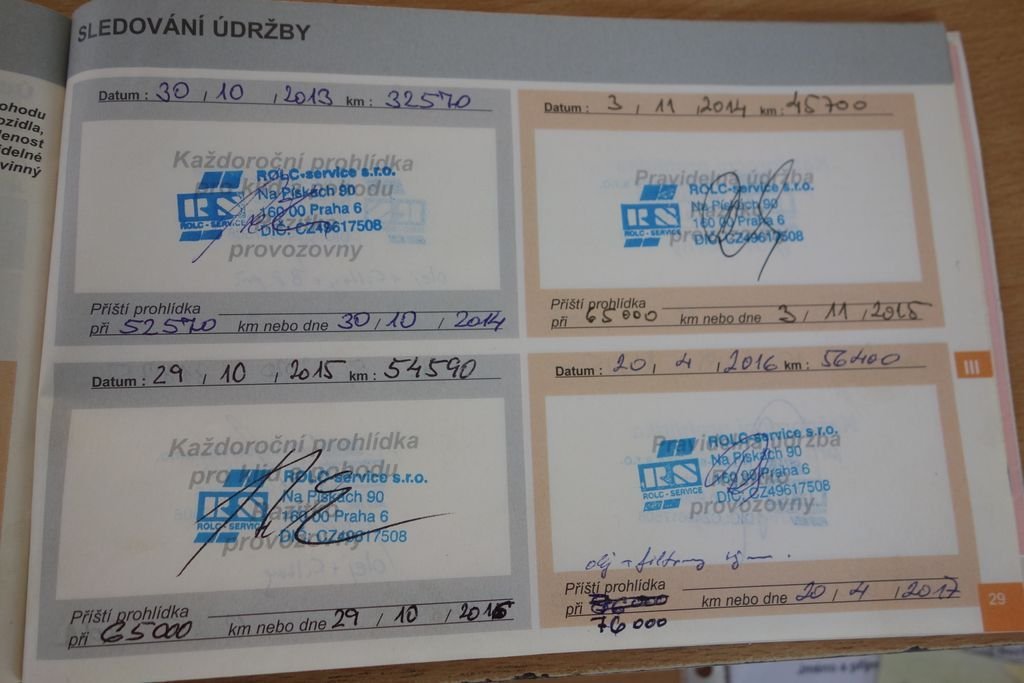 SLEDOVÁNÍ ÚDRŽBY
ohodu
ozidla,
enost
idelné
vinný
Datum : 30 / 10 / 2013 km : 32570
Každoroční prohlídka
pro klid a pohodu
Razítko
provozovny
ROLC-service s.r.o.
Na Pískách 90
160 00 Praha 6
DIČ: CZ49617508
RS
ROLC - SERVICE
Příští prohlídka
při 52570 km nebo dne 30 / 10 / 2014
Datum : 3 / 11 / 2014 km : 45700
Pravidelná údržba
Razítko
provozovny
ROLC-service s.r.o.
Na Pískách 90
160 00 Praha 6
DIČ: CZ49617508
RS
ROLC - SERVICE
Příští prohlídka
při 65000 km nebo dne 3 / 11 / 2015
Datum : 29 / 10 / 2015 km : 54590
Každoroční prohlídka
pro klid a pohodu
Razítko
provozovny
ROLC-service s.r.o.
Na Pískách 90
160 00 Praha 6
DIČ: CZ49617508
RS
ROLC - SERVICE
Příští prohlídka
při 65000 km nebo dne 29 / 10 / 2016
Datum : 20 / 4 / 2016 km : 56400
Pravidelná údržba
Razítko
provozovny
ROLC-service s.r.o.
Na Pískách 90
160 00 Praha 6
DIČ: CZ49617508
RS
ROLC - SERVICE
olej + filtry
Příští prohlídka
při 76000 km nebo dne 20 / 4 / 2017
III
29